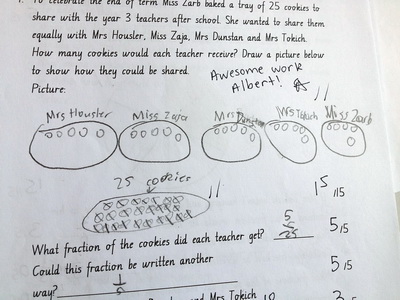 1. To celebrate the end of term Miss Zarb baked a tray of 25 cookies to
share with the year 3 teachers after school. She wanted to share them
equally with Mrs Housler, Miss Zaja, Mrs Dunstan and Mrs Tokich.
How many cookies would each teacher receive? Draw a picture below
to show how they could be shared.
Awesome work
Albert!
Picture:
Mrs Houster Miss Zaja Mrs Dunstan Mrs Tokich Miss Zarb
25 cookies
15 /15
What fraction of the cookies did each teacher get? 5/25 5/5
Could this fraction be written another 5/5
way? 1/5